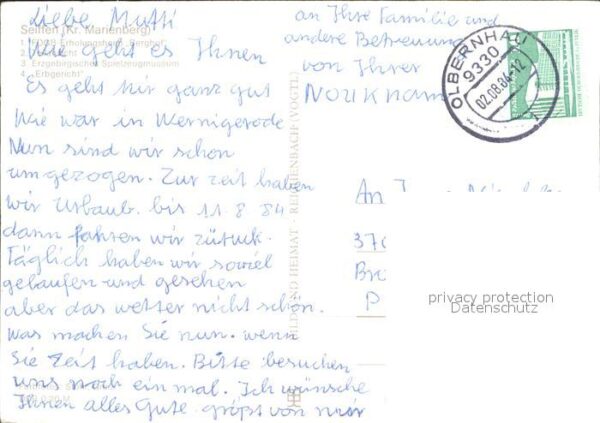 Liebe Mutti
Wie geht es Ihnen
Es geht Mir ganz gut
Wie war in Wernigerode
Nun sind wir schon
umgezogen. Zur zeit haben
wir Urlaub. bis 11.8 84
dann fahren wir zurück.
Täglich haben wir soviel
gelaufen und gesehen
aber das wetter nicht schön.
was machen Sie nun. wenn
Sie Zeit haben. Bitte besuchen
uns noch ein mal. Ich wünsche
Ihnen alles Gute. grüßt von mir
an Ihre Familie und
andere Betreuung
von Ihrer
Seiffen (Kr. Marienberg)
3. Erzgebirgisches Spielzeugmuseum
4. „Erbgericht"
BILD UND HEIMAT · REICHENBACH (VOGTL)
OLBERNHAU
9330
02.08.84-12
An
370
P
privacy protection
Datenschutz